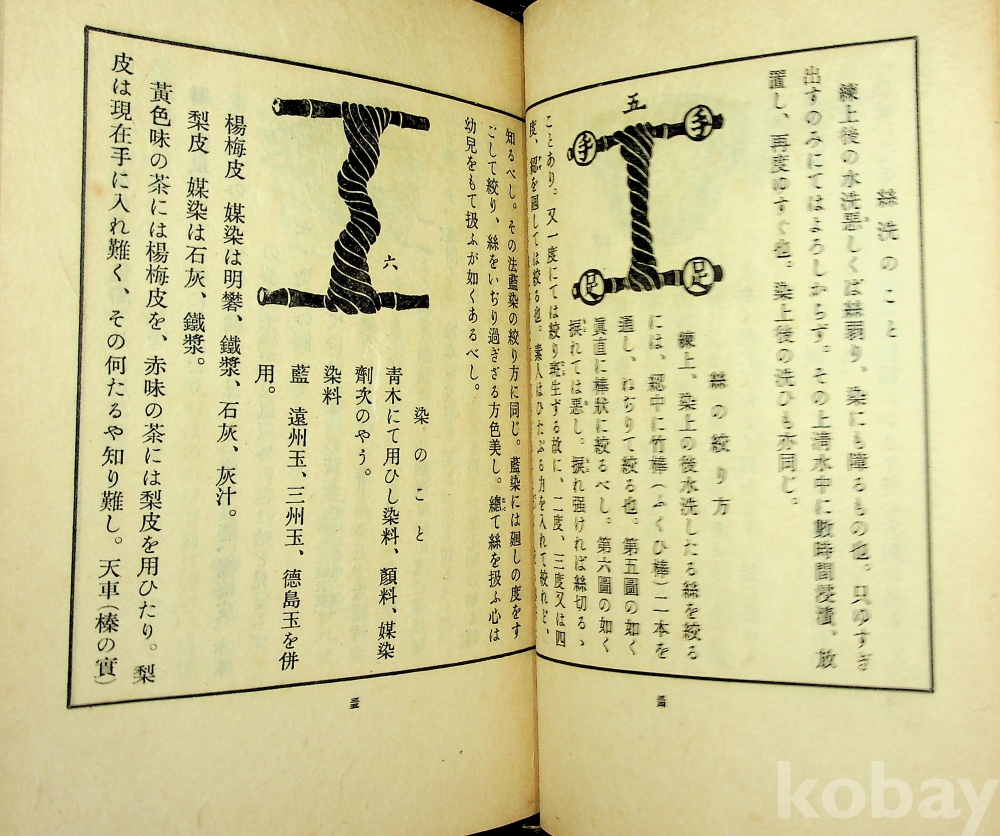 絲洗のこと
練上後の水洗悪しくば絲弱り、染にも障るもの也。只ゆすぎ
出すのみにてはよろしからず。その上清水中に數時間浸漬、放
置し、再度ゆすぐ也。染上後の洗ひも亦同じ。
絲の絞り方
練上、染上の後水洗したる絲を絞る
には、綛中に竹棒(ふくひ棒)二本を
通し、ねぢりて絞る也。第五圖の如く
眞直に棒狀に絞るべし。第六圖の如く
捩れては惡し。捩れ强ければ絲切るゝ
五
手
手
足
足
ことあり。又一度にては絞り斑生ずる故に、二度、三度又は四
度、綛を廻しては絞る也。素人はひたぶる力を入れて絞れど、
知るべし。その法藍染の絞り方に同じ。藍染には廻しの度をす
ごして絞り、絲をいぢり過ぎざる方色美し。總て絲を扱ふ心は
幼兒をもて扱ふが如くあるべし。
六
染のこと
青木にて用ひし染料、顏料、媒染
劑次のやう。
染料
藍 遠州玉、三州玉、德島玉を併
用。
楊梅皮 媒染は明礬、鐵漿、石灰、灰汁。
梨皮 媒染は石灰、鐵漿。
黃色味の茶には楊梅皮を、赤味の茶には梨皮を用ひたり。梨
皮は現在手に入れ難く、その何たるや知り難し。天車(榛の實)
kobay